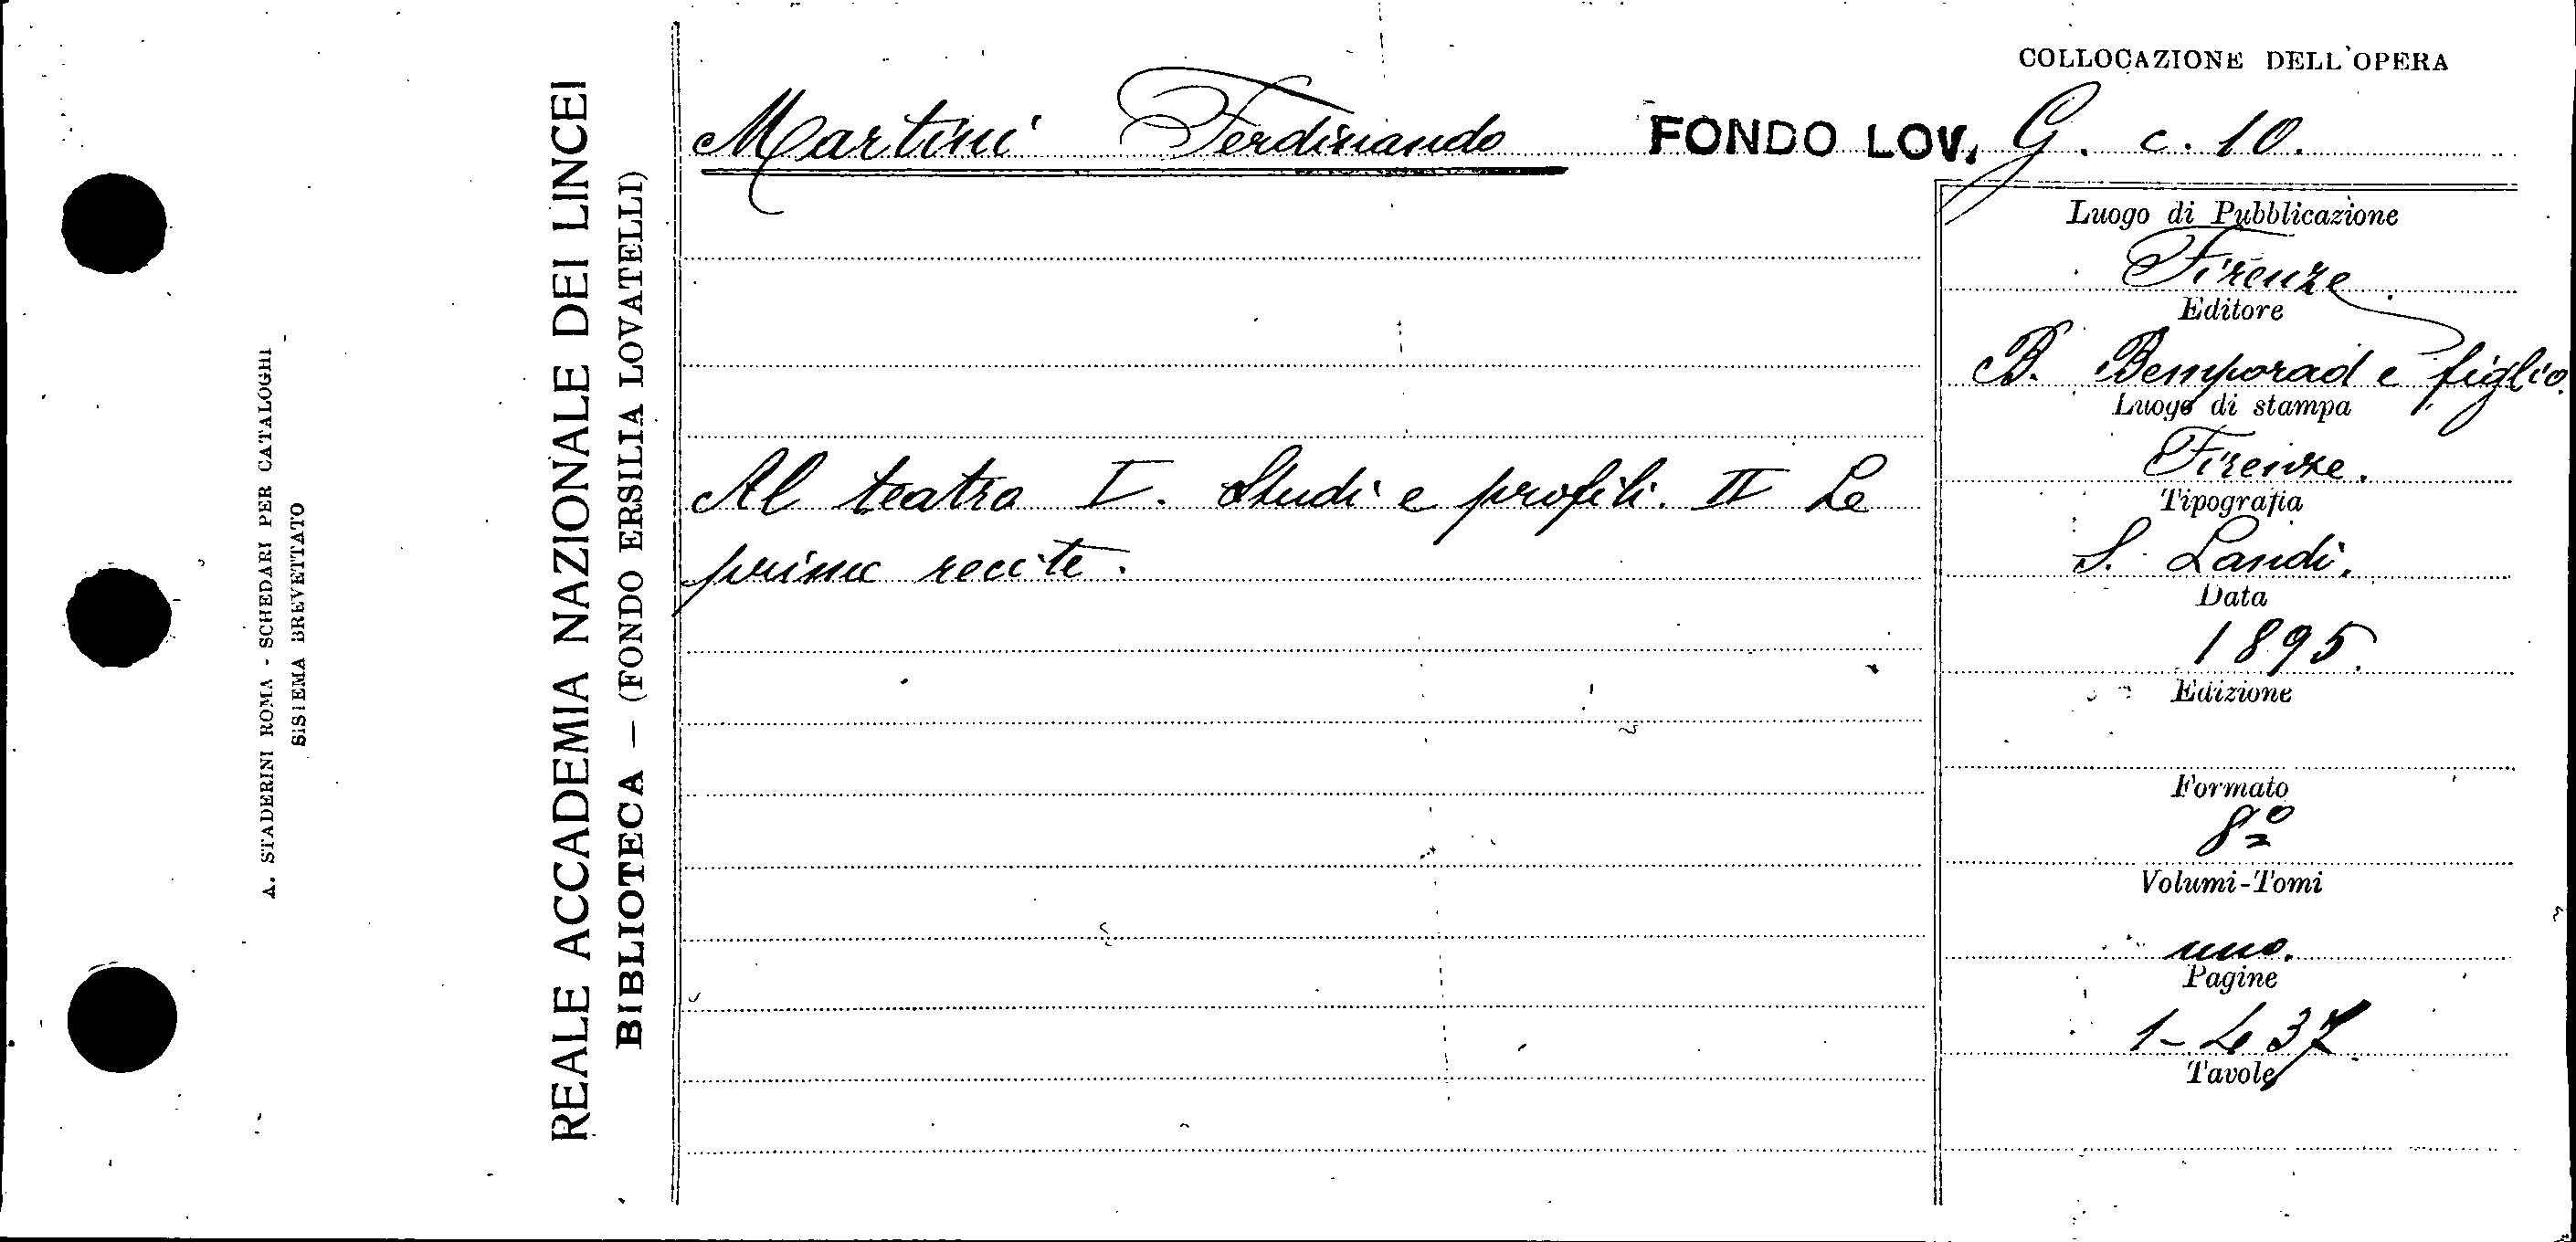 COLLOCAZIONE DELL'OPERA
Martini Ferdinando FONDO LOV. G. c. 10.
Al teatro I. Studi e profili. II Le
prime recite.
Luogo di Pubblicazione
Firenze
Editore
B. Bemporad e figlio.
Luogo di stampa
Firenze.
Tipografia
S. Landi.
Data
1895.
Edizione
Formato
8º
Volumi-Tomi
uno.
Pagine
1-437
Tavole
REALE ACCADEMIA NAZIONALE DEI LINCEI
BIBLIOTECA — (FONDO ERSILIA LOVATELLI)
A. STADERINI ROMA - SCHEDARI PER CATALOGHI
SISTEMA BREVETTATO